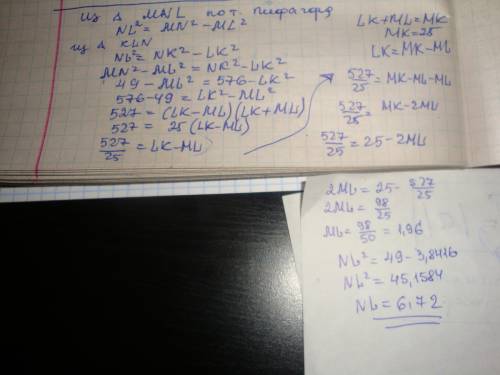 из Δ MNL по т. Пифагора
NL² = MN² - ML²
из Δ KLN
NL² = NK² - LK²
MN² - ML² = NK² - LK²
49 - ML² = 576 - LK²
576 - 49 = LK² - ML²
527 = (LK - ML)(LK + ML)
527 = 25 (LK - ML)
527/25 = LK - ML
LK + ML = MK
MK = 25
LK = MK - ML
527/25 = MK - ML - ML
527/25 = MK - 2ML
527/25 = 25 - 2ML
2ML = 25 - 527/25
2ML = 98/25
ML = 98/50 = 1,96
NL² = 49 - 3,8416
NL² = 45,1584
NL = 6,72